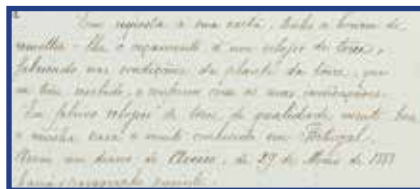 Em resposta á sua carta, tenho a honra de
remetter-lhe o orçamento d'um relogio de torre,
fabricado nas condições da planta da torre, que
me tem enviado, e conforme com as suas indicações.
Eu fabrico relogios de torre de qualidade muito boa
e minha casa é muito conhecida em Portugal.
de Aveiro, de 29 de Maio de 1883